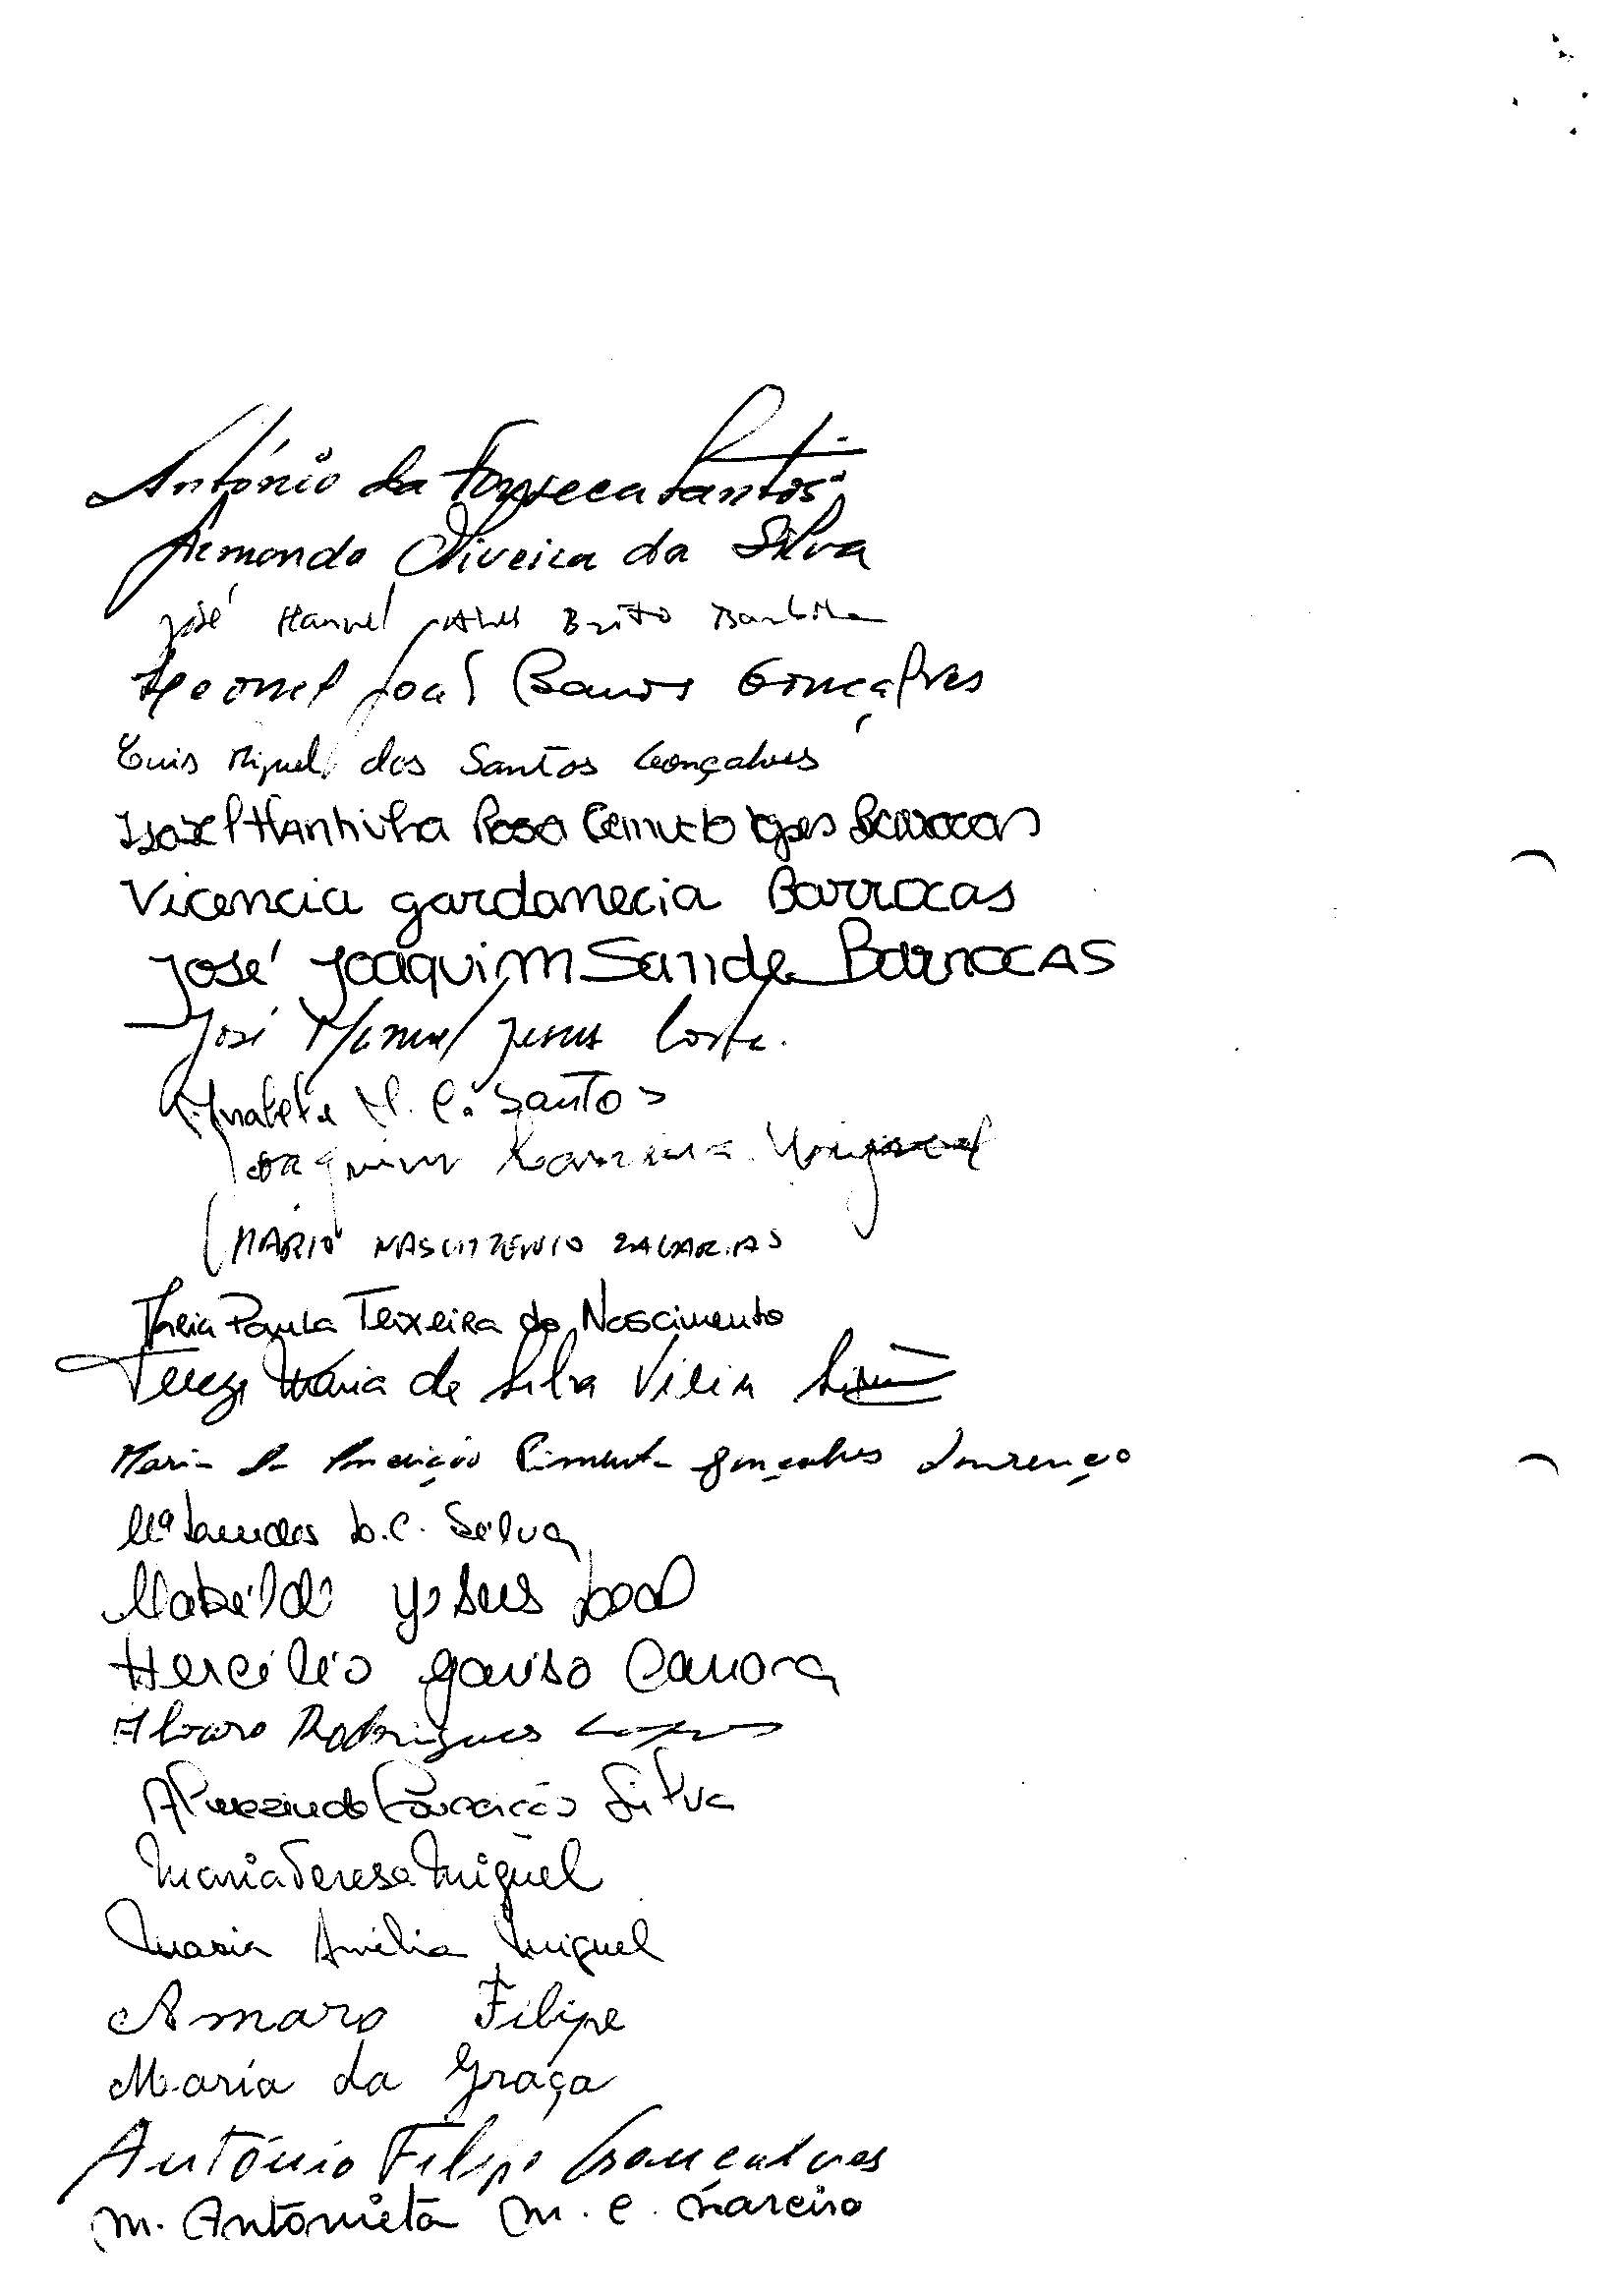 António da Fonseca Santos
Armando Oliveira da Silva
José Manuel Alves Brito
Leonel José Barros Gonçalves
Luis Miguel dos Santos Gonçalves
Isabel Rosa Lopes Barrocas
Vicencia gardanecia Barrocas
José Joaquim Sande Barrocas
José Manuel Jesus Costa.
M. C. Santos
Joaquim
MÁRIO NASCIMENTO ZACARIAS
Paula Teixeira do Nascimento
Teresa Maria da Silva Vieira
Maria da Conceição Pimenta Gonçalves Lourenço
Mª Lourdes D.C. Silva
Jesus Leal
Hercílio Canona
Alvaro Rodrigues Lopes
Conceição Silva
Maria Teresa Miguel
Maria Amélia Miguel
Amaro Filipe
Maria da Graça
António Filipe Gonçalves
M. Antonieta M. C.